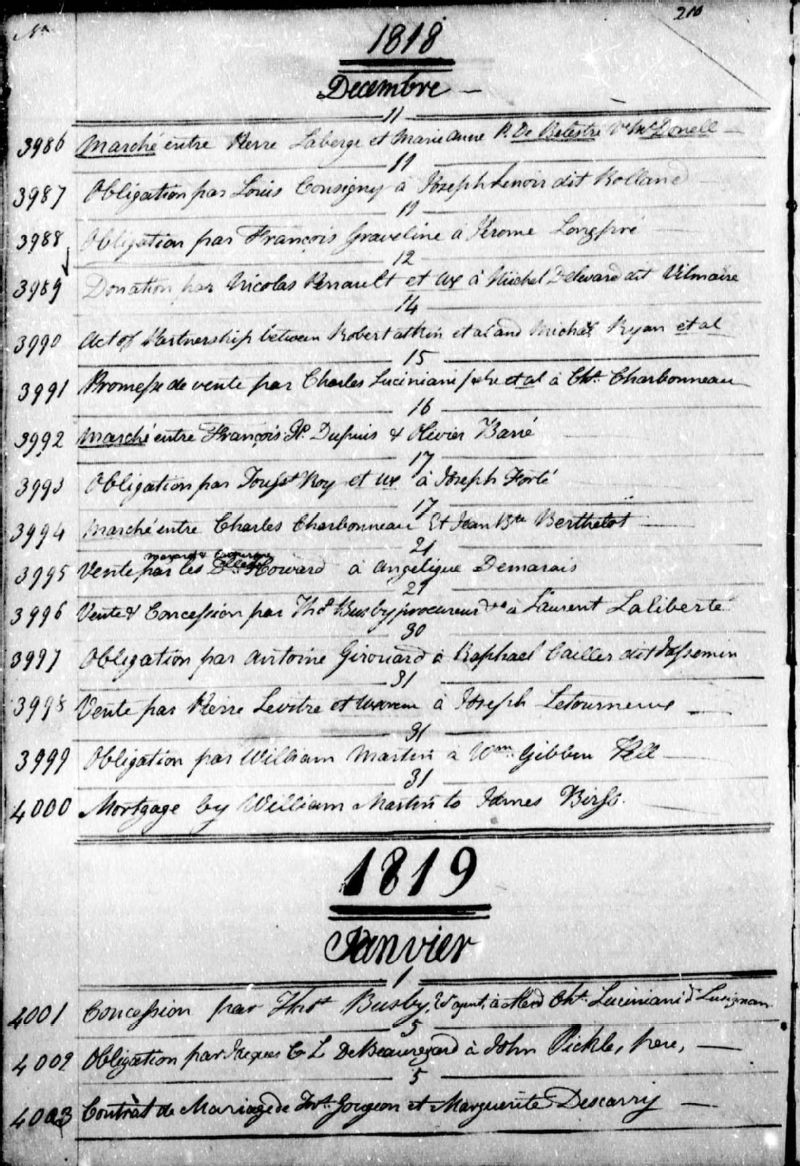 No
210
1818
Decembre
11
3986 Marché entre Pierre Laberge et Marie Anne P. De Belestre Ve McDonell
11
3987 Obligation par Louis Consigny à Joseph Lenoir dit Rolland
11
3988 Obligation par François Graveline à Jérome Longpré
12
3989 Donation par Nicolas Perrault et ux à Michel dit Vilmaire
14
3990 Act of Partnership between Robert Atkin et al and Michael Ryan et al
15
3991 Promesse de vente par Charles Luciniani et al à Chs. Charbonneau
16
3992 Marché entre François Dupuis & Olivier Barré
17
3993 Obligation par Roy et ux à Joseph Forté
17
3994 Marché entre Charles Charbonneau Et Jean Bte Berthelot
21
3995 Vente par les Howard a Angelique Demarais
21
3996 Vente & Concession par Thos Busby procureur à Laurent Laliberté
30
3997 Obligation par Antoine Girouard à Raphael Cailler dit Jassemin
31
3998 Vente par Pierre Levitre et à Joseph Letourneux
31
3999 Obligation par William Martin à Wm Gibben Hill
31
4000 Mortgage by William Martin to James Birss.
1819
Janvier
1
4001 Concession par Thos Busby, à Chs. Luciniani dt Lusignan
5
4002 Obligation par Jacques C L DeBeauregard à John Pickle, pere,
5
4003 Contrat de Mariage de Gougeon et Marguerite Descarry